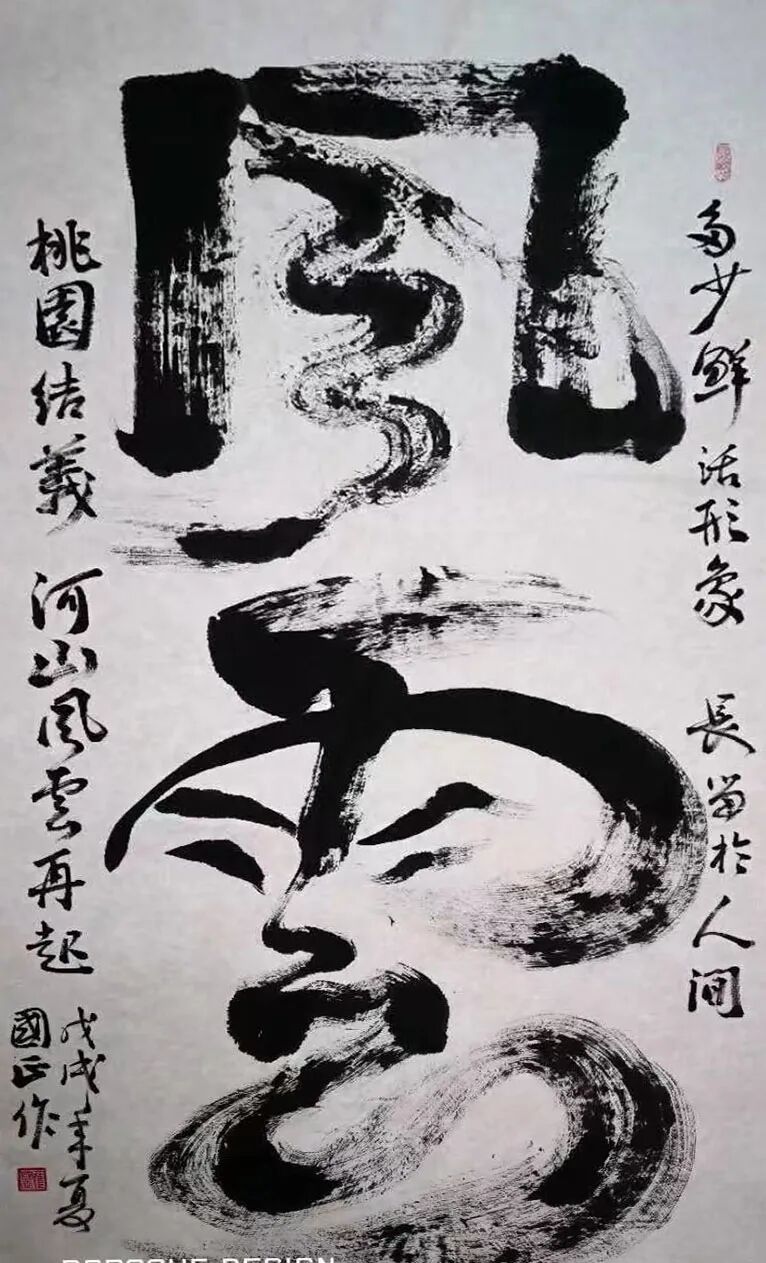 多少鲜活形象 長留於人间
风雲
桃園结義 河山风雲再起
戊戌年夏
國正作
PORSCHE DESIGN